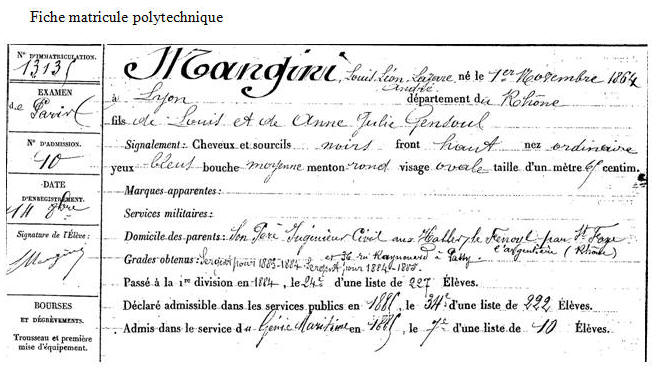 Fiche matricule polytechnique
N° D'IMMATRICULATION.
13135
EXAMEN
de Paris
N° D'ADMISSION.
40
DATE
D'ENREGISTREMENT.
14 8bre
Signature de l'Élève:
Mangini
BOURSES
ET DÉGRÈVEMENTS.
Trousseau et première
mise d'équipement.
Mangini, Louis Léon Lazare André né le 1er Novembre 1864
à Lyon département du Rhône
fils de Louis et de Anne Julie Gensoul
Signalement: Cheveux et sourcils noirs front haut nez ordinaire
yeux bleus bouche moyenne menton rond visage ovale taille d'un mètre 65 centim.
Marques apparentes:
Services militaires:
Domicile des parents: Son Père Ingénieur Civil aux Halles, le Fenoyl par Ste Foye
l'argentière (Rhône)
et 36 rue Raynouard à Passy.
Grades obtenus: Sergent pour 1883-1884 Sergent pour 1884-1885.
Passé à la 1re division en 1884, le 24e d'une liste de 227 Élèves.
Déclaré admissible dans les services publics en 1885, le 34e d'une liste de 222 Élèves.
Admis dans le service du Génie Maritime en 1885, le 7e d'une liste de 10 Élèves.